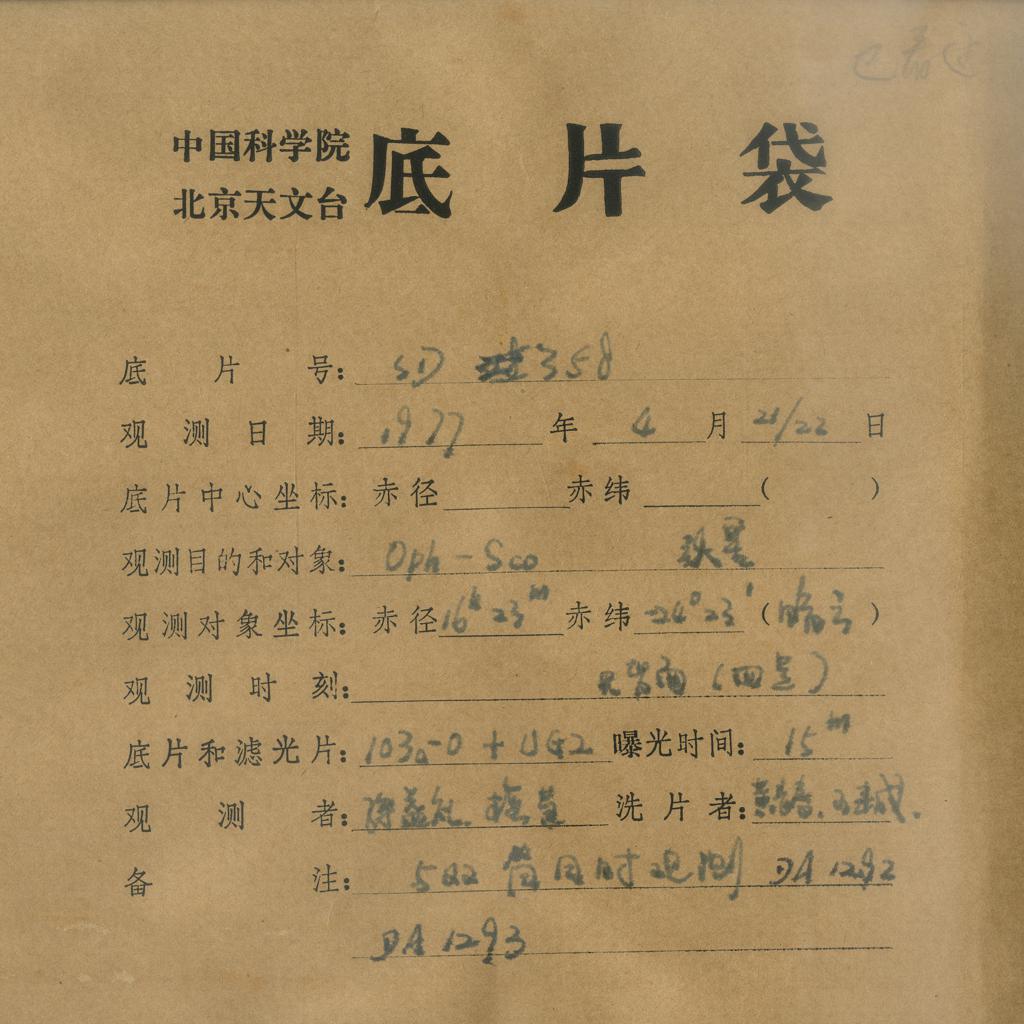 中国科学院
北京天文台
底片袋
底片号: SD 358
观测日期: 1977年 4月 21/22日
底片中心坐标: 赤径 赤纬 ( )
观测目的和对象: Oph-Sco 耿星
观测对象坐标: 赤径 16h 23m 赤纬 -24° 23′ (暗云)
观测时刻: (四星)
底片和滤光片: 103a-O + UG2 曝光时间: 15m
观测者: 洗片者:
备注: 筒同时观测 DA 1292
DA 1293